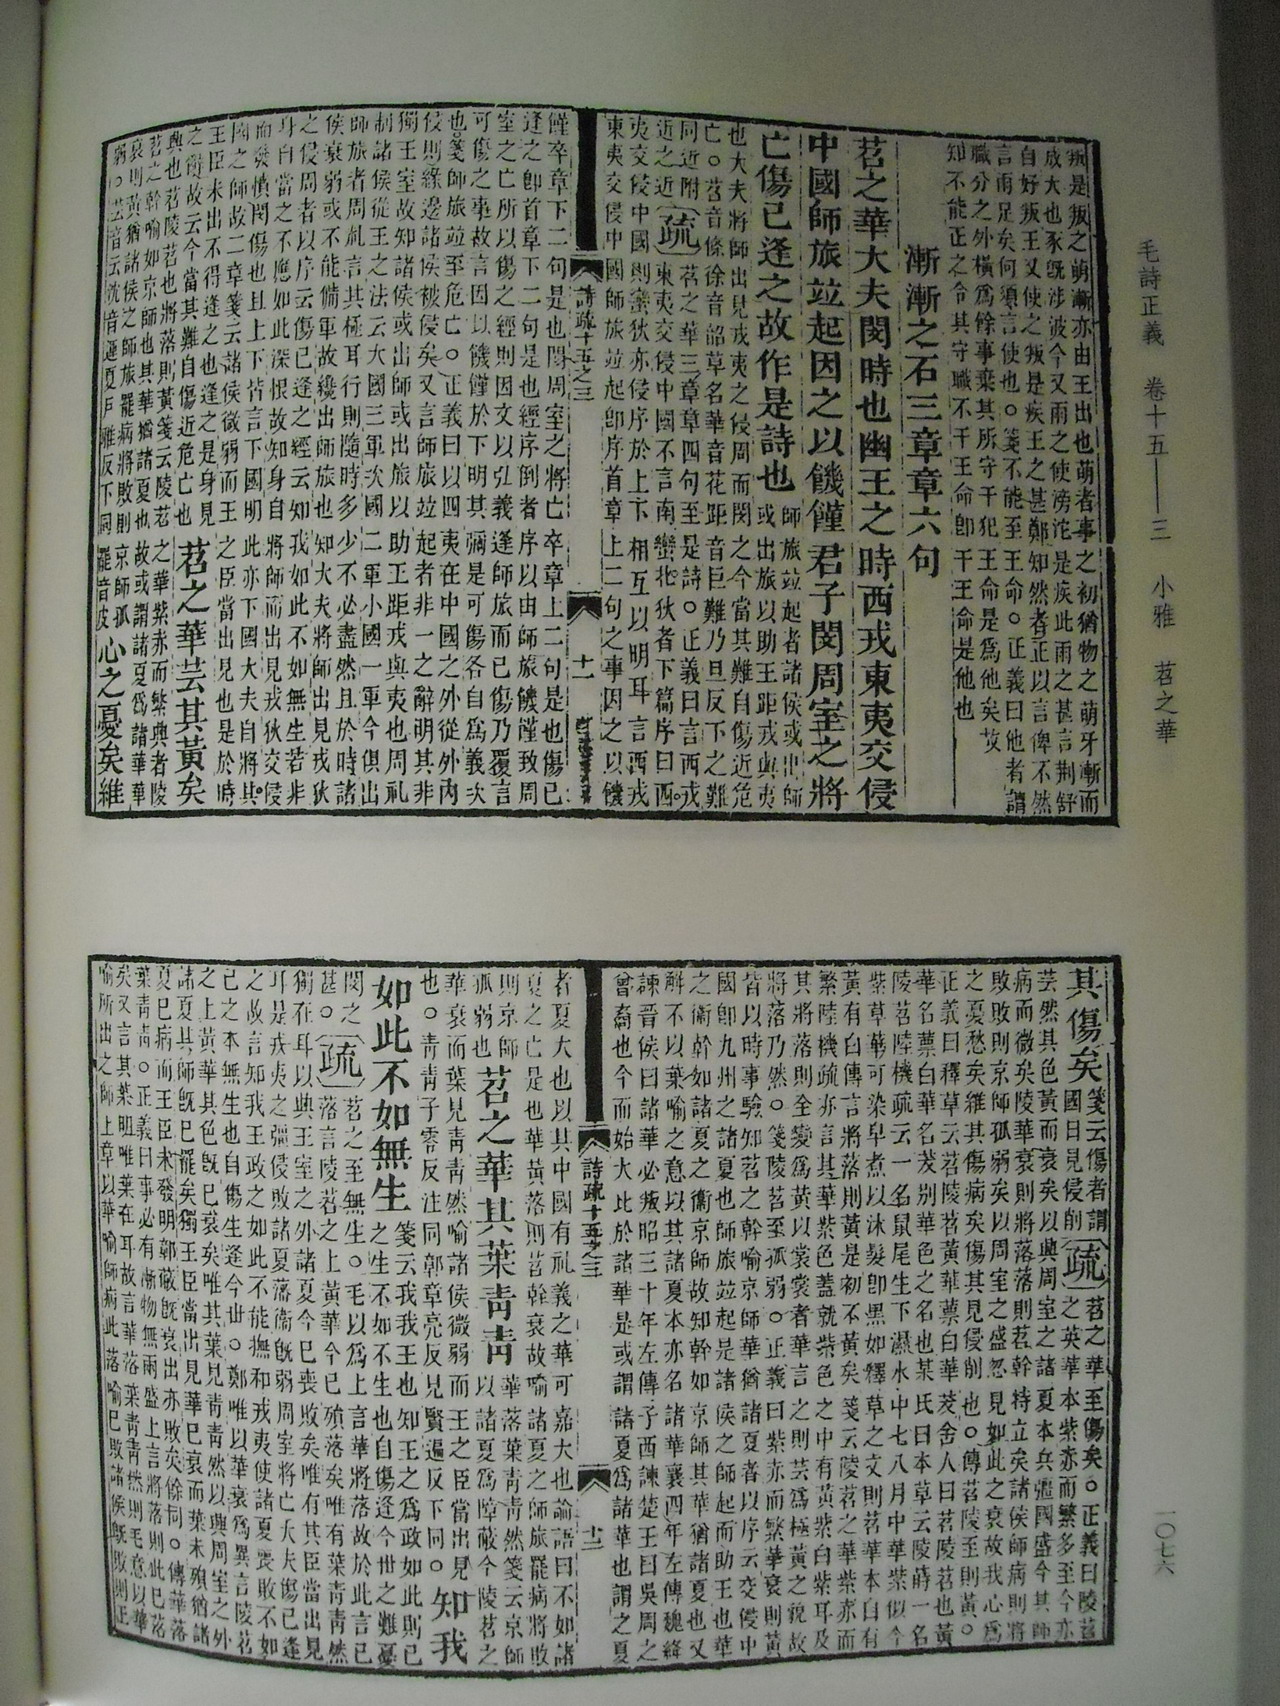 毛詩正義 卷十五——三 小雅 苕之華
叛是叛之萌漸亦由王出也萌者事之初猶物之萌牙漸而
成大也豕既涉波今又雨之使滂沱是疾此雨之甚言荆舒
自好叛王又使之叛是疾王之甚鄭知然者正以言俾不然
言雨足矣何須言使也○箋不能至王命○正義曰他者謂
職分之外橫爲餘事棄其所守干犯王命是爲他矣故
知不能正之令其守職不干王命卽干王命是他也
漸漸之石三章章六句
苕之華大夫閔時也幽王之時西戎東夷交侵
中國師旅竝起因之以饑饉君子閔周室之將
亡傷已逢之故作是詩也
師旅竝起者諸侯或出師
或出旅以助王距戎與夷
也大夫將師出見戎夷之侵周而閔之今當其難自傷近危
亡○苕音條徐音韶草名華音花距音巨難乃旦反下之難
同近附
近之近
疏
苕之華三章章四句至是詩○正義曰言西戎
東夷交侵中國不言南蠻北狄者下篇序曰西
夷交侵中國則蠻狄亦侵序於上下相互以明耳言西戎
東夷交侵中國師旅竝起卽序首章上二句之事因之以饑
詩疏十五之三 十一
饉卒章下二句是也閔周室之將亡卒章上二句是也傷已
逢之卽首章下二句是也經序倒者序以由師旅饑饉致周
室之亡所以傷之經則因文以引義逢師旅而已傷乃覆言
可傷之事故言因以饑饉於下明其彌是可傷各自爲義次
也○箋師旅竝至危亡○正義曰以四夷在中國之外從外內
侵則緣邊諸侯被侵矣又言師旅竝起者非一之辭明其非
獨王室故知諸侯或出師或出旅以助王距戎與夷也周礼
制諸侯從王之法云大國三軍次國二軍小國一軍今俱出
師旅者周礼言其極耳行則隨時多少不必盡然且於時諸
侯衰弱或不能備軍故纔出師旅也知大夫將師出見戎狄
之侵周者以序云傷已逢之經云知我如此不如無生若非
身自當之不應如此深恨故知身自將師而出見戎狄交侵
而發憤閔傷也且上下皆言下國明此亦下國大夫自將其
國之師故二章箋云諸侯微弱而王之臣當出見也是於時
王臣未出不得逢之也逢之是身見
之辭故云今當其難自傷近危亡也
苕之華芸其黃矣
興也苕陵苕也將落則黃箋云陵苕之華紫赤而繁興者陵
苕之幹喻如京師也其華猶諸夏也故或謂諸夏爲諸華華
衰則黃猶諸侯之師旅罷病將敗則京師孤
弱○芸音云沈音運夏戶雅反下同罷音皮
心之憂矣維
其傷矣
箋云傷者謂
國日見侵削
疏
苕之華至傷矣○正義曰陵苕
之英華本紫赤而繁多至今亦
芸然其色黃而衰矣以興周室之諸夏本兵彊國盛今其師
病而微矣陵華衰則將落落則苕幹特立矣諸侯師病則將
敗敗則京師孤弱矣以周室之盛忽見如此之衰故我心爲
之憂愁矣維其傷病矣傷其見侵削也○傳苕陵至則黃○
正義曰釋草云苕陵苕黃華蔈白華茇舍人曰苕陵苕也黃
華名蔈白華名茇別華色之名也某氏曰本草云陵蒔一名
陵苕陸機疏云一名鼠尾生下濕水中七八月中華紫似今
紫草華可染皁煮以沐髮卽黑如釋草之文則苕華本自有
黃有白傳言將落則黃是初不黃矣箋云陵苕之華紫赤而
繁陸機疏亦言其華紫色蓋就紫色之中有黃紫白紫耳及
其將落則全變爲黃以裳裳者華言之則芸爲極黃之貌故
將落乃然○箋陵苕至孤弱○正義曰紫赤而繁華衰則黃
皆以時事驗知苕之幹喻京師華猶諸夏者以序云交侵中
國卽九州之諸夏也師旅竝起是諸侯之師起而助王也華
之衞幹如諸夏之衞京師故知幹如京師其華猶諸夏也又
解不以葉喻之意以其諸夏本亦名諸華襄四年左傳魏絳
諫晉侯曰諸華必叛昭三十年左傳子西諫楚王曰吳周之
冑裔也今而始大比於諸華是或謂諸夏爲諸華也謂之夏
詩疏十五之三 十二
者夏大也以其中國有礼義之華可嘉大也論語曰不如諸
夏之亡是也華黃落則苕幹衰故喻諸夏之師旅罷病將敗
則京師
孤弱也
苕之華其葉靑靑
華落葉靑靑然箋云京師
以諸夏爲障蔽今陵苕之
華衰而葉見靑靑然喻諸侯微弱而王之臣當出見
也○靑靑子零反注同郭章亮反見賢遍反下同○
知我
如此不如無生
箋云我我王也知王之爲政如此則已
之生不如不生也自傷逢今世之難憂
閔之
甚○
疏
苕之至無生○毛以爲上言華將落故於此言已
落言陵苕之上黃華今已殞落矣唯有葉靑靑然
獨在耳以興王室之外諸夏今已喪敗矣唯有其臣當出見
耳是戎夷之彊侵敗諸夏藩衞既弱周室將亡大夫傷已逢
之故言知我王政之如此不能撫和戎夷使諸夏喪敗不如
已之本無生也自傷生逢今世○鄭唯以華衰爲異言陵苕
之上黃華其色既已衰矣唯其葉見靑靑然以興周室之外
諸夏其師既已罷矣獨王臣當出見華已衰而葉未殞猶諸
夏已病而王臣未發明鄣蔽既衰出亦敗矣餘同○傳華落
葉靑靑○正義曰事必有漸物無兩盛上言將落則此已落
矣又言其葉明唯葉在耳故言華落葉靑靑然則毛意以華
喻所出之師上章以華喻師病此落喻已敗諸侯既敗則王
一〇七六